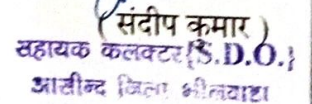 ( संदीप कुमार )
सहायक कलक्टर {S.D.O.}
आसीन्द जिला भीलवाडा